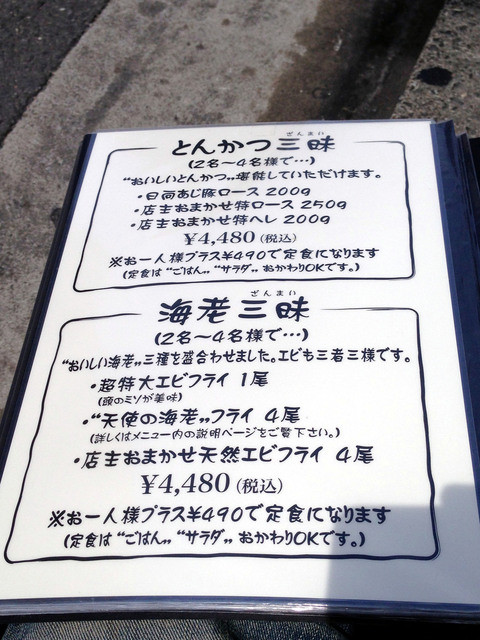 ざんまい
とんかつ三昧
(2名～4名様で…)
“おいしいとんかつ„堪能していただけます。
・日向あじ豚ロース 200g
・店主おまかせ特ロース 250g
・店主おまかせ特ヘレ 200g
¥4,480(税込)
※お一人様プラス¥490で定食になります
(定食は“ごはん„“サラダ„おかわりOKです。)
ざんまい
海老三昧
(2名～4名様で…)
“おいしい海老„三種を盛合わせました。エビも三者三様です。
・超特大エビフライ 1尾
(頭のミソが美味)
・“天使の海老„フライ 4尾
(詳しくはメニュー内の説明ページをご覧下さい。)
・店主おまかせ天然エビフライ 4尾
¥4,480(税込)
※お一人様プラス¥490で定食になります
(定食は“ごはん„“サラダ„おかわりOKです。)